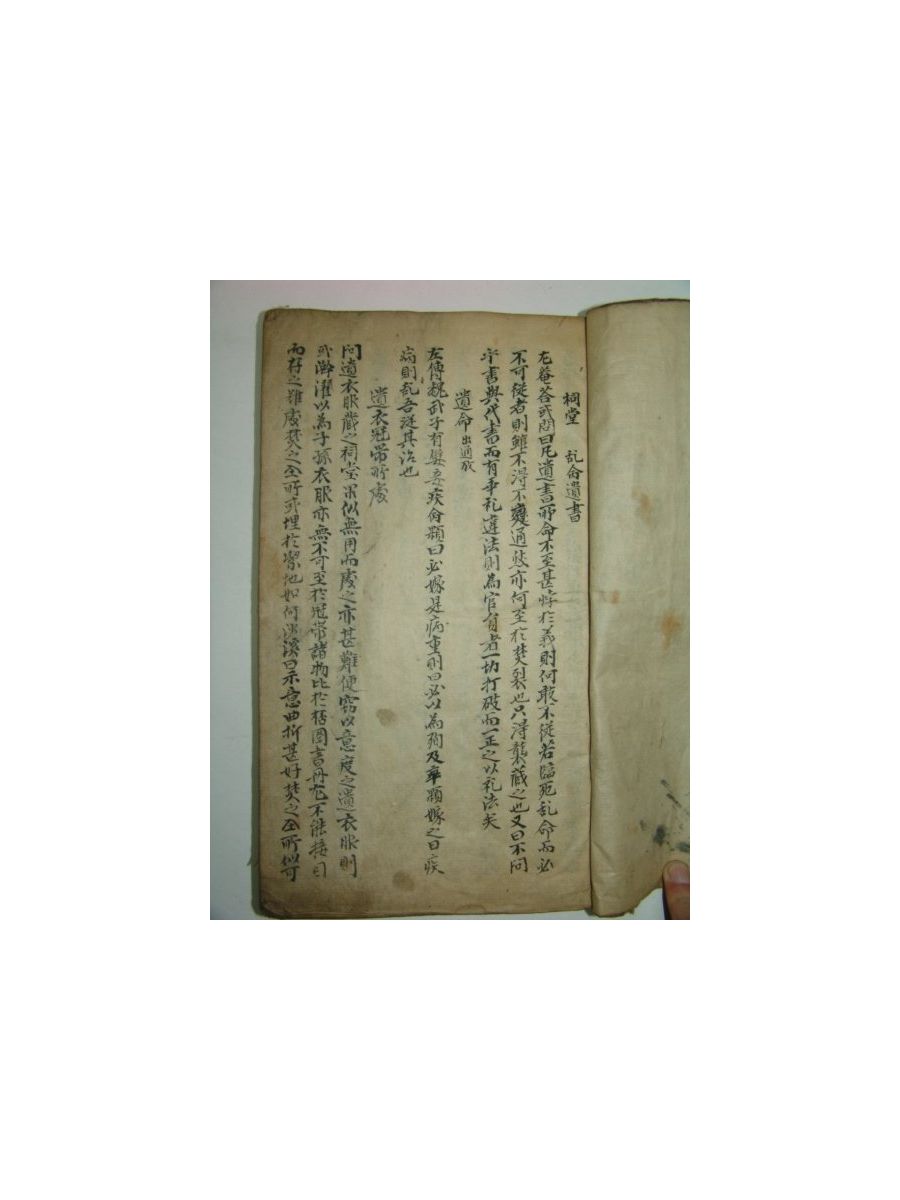 祠堂 乱命遺書
尤菴答或問曰凡遺書所命不至甚悖於義則何敢不從若臨死乱命而必
不可從者則雖不得不變通然亦何至於焚裂也只得藏之也又曰不問
手書與代書而有乖礼違法則為官員者一切打破而一正之以礼法矣
遺命 出通攷
左傳魏武子有嬖妾疾命顆曰必嫁是病重則曰必以為殉及卒顆嫁之曰疾
病則乱吾從其治也
遺衣冠帶所處
問遺衣服藏之祠堂果似無用而處之亦甚難便窃以意度之遺衣服則
或澣濯以為子孫衣服亦無不可至於冠帶諸物比於桮圈書冊尤不能接目
而存之難處焚之全所或埋於潔地如何溪曰示意曲折甚好焚之全所似可